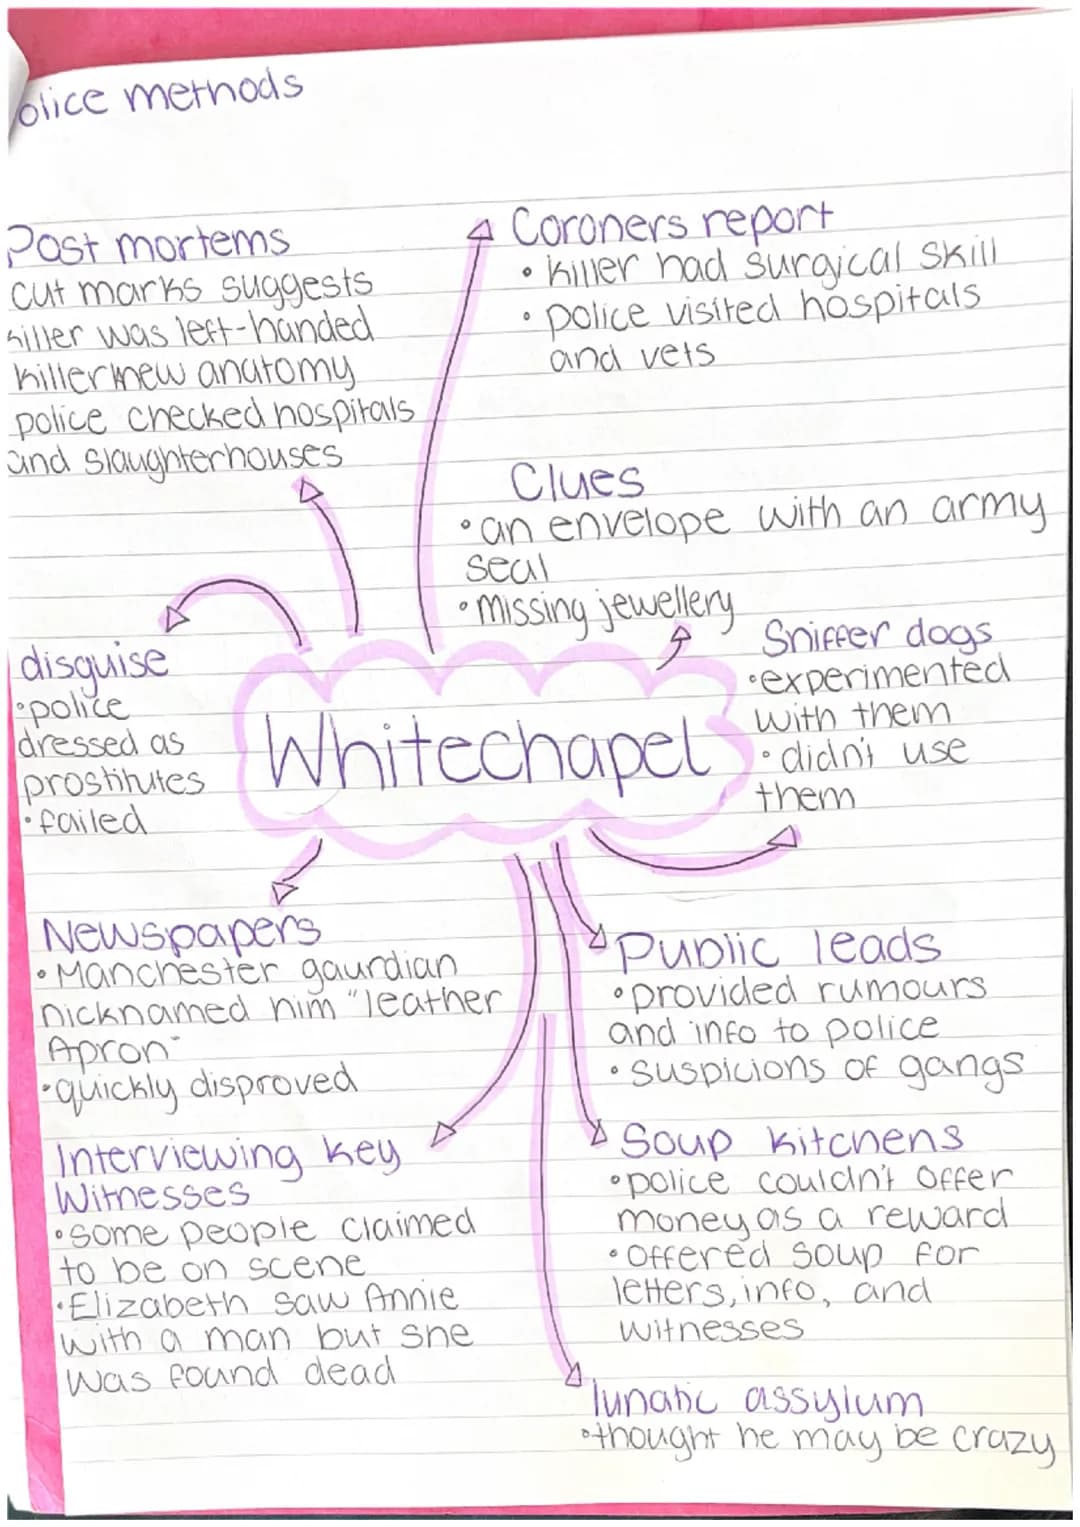 olice methods
Post mortems
cut marks suggests
killer was left-handed
killer knew anatomy
police checked hospitals
and slaughterhouses
Coroners report
• killer had surgical skill
• police visited hospitals
and vets
Clues
• an envelope with an army
seal
• missing jewellery
Sniffer dogs
• experimented
with them
• didn't use
them
disguise
• police
dressed as
prostitutes
• failed
Whitechapel
Newspapers
• Manchester gaurdian
nicknamed him "leather
Apron"
• quickly disproved
Public leads
• provided rumours
and info to police
• suspicions of gangs
Interviewing key
Witnesses
• some people claimed
to be on scene
• Elizabeth saw Annie
with a man but she
was found dead
Soup kitchens
• police couldn't offer
money as a reward
• offered soup for
letters, info, and
witnesses
lunatic assylum
• thought he may be crazy